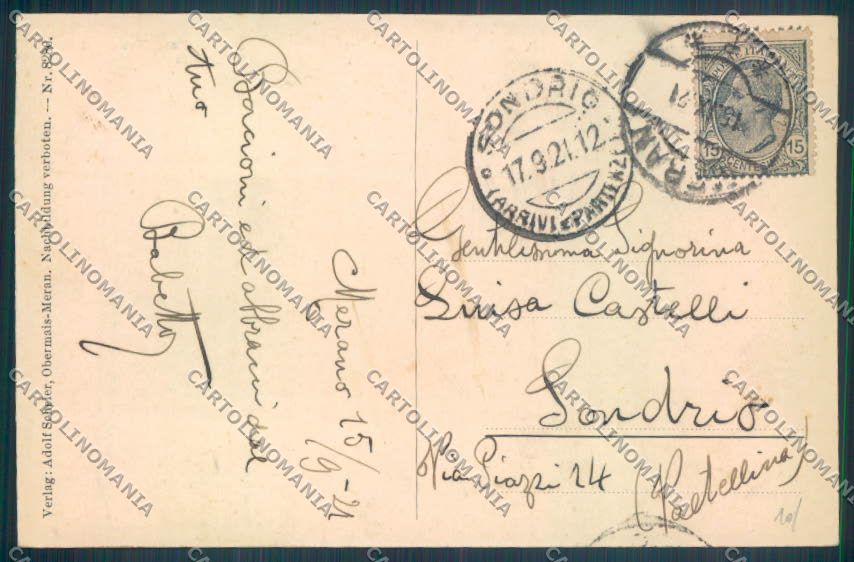 Bacioni ed abbracci dal
tuo
Babetto
Merano 15/9-21
Verlag: Adolf Schuler, Obermais-Meran. Nachbildung verboten. — Nr.
SONDRIO
17.9.21.12
(ARRIVI E PARTENZE)
MERAN
15 CENT 15
Gentilissima Signorina
Luisa Castelli
Sondrio
Via Piazzi 24
(Valtellina)
10/
CARTOLINOMANIA